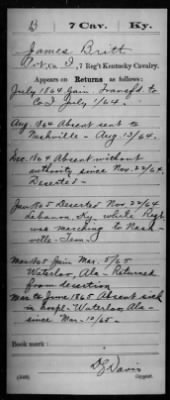 B 7 Cav. Ky.
James Britt
Pvt, Co. I, 7 Reg't Kentucky Cavalry.
Appears on Returns as follows:
July 1864 Gain. Transf'd to
Co I July 1/64.
Aug. 1864 Absent sent to
Nashville - Aug 13/64.
Dec. 1864 Absent without
authority since Nov 22/64.
Deserted -
Jan 1865 Deserted Nov 22/64
Lebanon, Ky. while Regt
was marching to Nash-
ville - Tenn.
Mar 1865 Gain Mar. 5/65
Waterloo, Ala - Returned
from desertion
Mar to June 1865 Absent sick
in hospl - Waterloo, Ala -
since Mar. 10/65 -
Book mark:
D.G. Davis
Copyist.